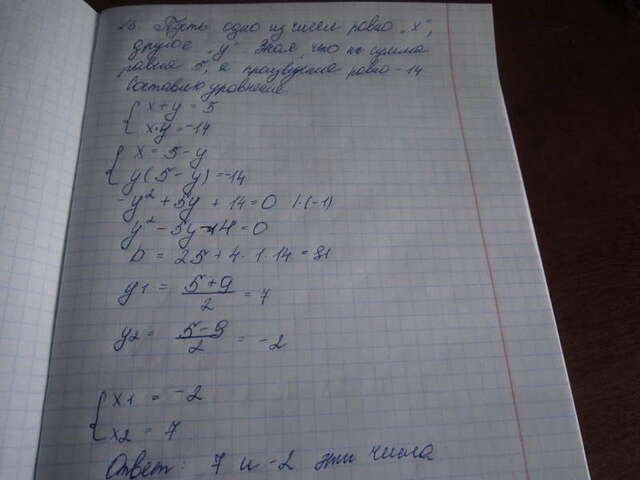 Пусть одно из чисел равно „x“,
другое „y“ Зная что их сумма
равна 5, а произведение равно -14
Составлю уравнение
x+y = 5
x·y = -14
x = 5-y
y(5-y) = -14
-y² + 5y + 14 = 0 |·(-1)
y² - 5y - 14 = 0
D = 25 + 4 · 1 · 14 = 81
y1 = 5+9/2 = 7
y2 = 5-9/2 = -2
x1 = -2
x2 = 7
Ответ: 7 и -2 эти числа